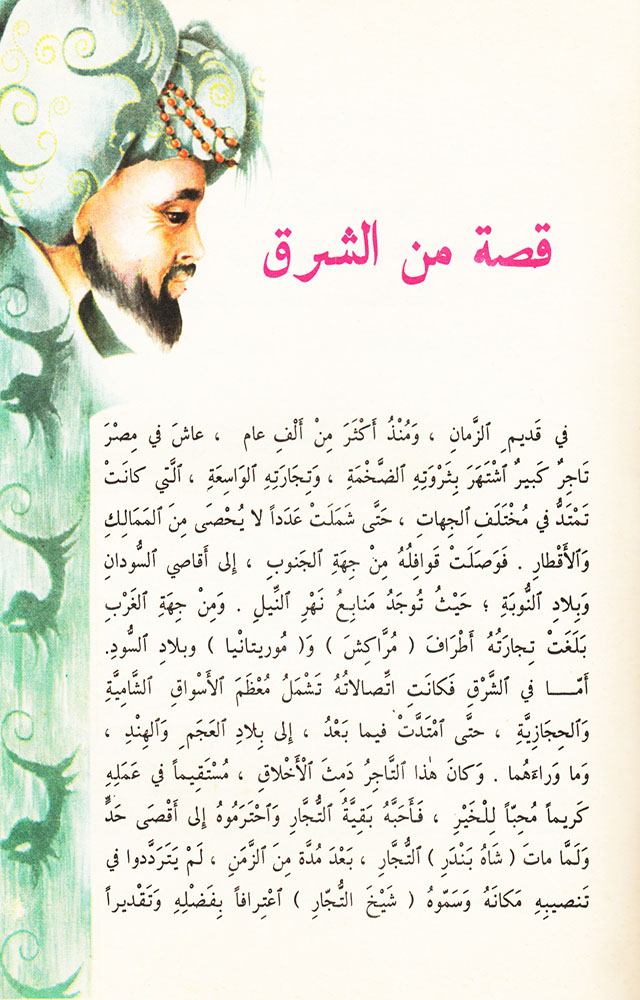 قصة من الشرق
في قَديمِ ٱلزَّمانِ ، وَمُنْذُ أَكْثَرَ مِنْ أَلْفِ عام ، عاشَ في مِصْرَ
تَاجِرٌ كَبيرٌ ٱشْتَهَرَ بِثَرْوَتِهِ ٱلضَّخْمَةِ ، وَتِجارَتِهِ ٱلواسِعَةِ ، ٱلَّتي كانَتْ
تَمْتَدُّ في مُخْتَلَفِ ٱلجِهاتِ ، حَتَّى شَمَلَتْ عَدَداً لا يُحْصَى مِنَ ٱلمَمَالِكِ
وَٱلأَقْطارِ . فَوَصَلَتْ قَوافِلُهُ مِنْ جِهَةِ ٱلجَنوبِ ، إِلى أَقاصي ٱلسُّودانِ
وَبِلادِ ٱلنُّوبَةِ ؛ حَيْثُ تُوجَدُ مَنابِعُ نَهْرِ ٱلنِّيلِ . وَمِنْ جِهَةِ ٱلغَرْبِ
بَلَغَتْ تِجارَتُهُ أَطْرافَ ( مُرَّاكِشَ ) وَ( مُوريتانْيا ) وبلادِ ٱلسُّودِ.
أَمّــــا في ٱلشَّرْقِ فَكانَتِ ٱتِّصالاتُهُ تَشْمَلُ مُعْظَمَ ٱلأَسْواقِ ٱلشَّامِيَّةِ
وَٱلحِجازِيَّةِ ، حتَّى ٱمْتَدَّتْ فيما بَعْدُ ، إِلى بِلادِ ٱلعَجَمِ وَٱلهِنْدِ ،
وَما وَراءَهُما . وَكانَ هٰذا ٱلتَّاجِرُ دَمِثَ ٱلْأَخْلاقِ ، مُسْتَقِيماً في عَمَلِهِ
كَريماً مُحِبّاً لِلْخَيْرِ ، فَأَحَبَّهُ بَقِيَّةُ ٱلتُّجَّارِ وَٱحْتَرَمُوهُ إِلى أَقْصَى حَدٍّ
وَلَمَّا ماتَ ( شَاهُ بَنْدَرِ ) ٱلتُّجَّارِ ، بَعْدَ مُدَّةٍ مِنَ ٱلزَّمَنِ ، لَمْ يَتَرَدَّدوا في
تَنصيبِهِ مَكانَهُ وَسَمَّوهُ ( شَيْخَ ٱلتُّجّارِ ) ٱعْتِرافاً بِفَضْلِهِ وَتَقْديراً